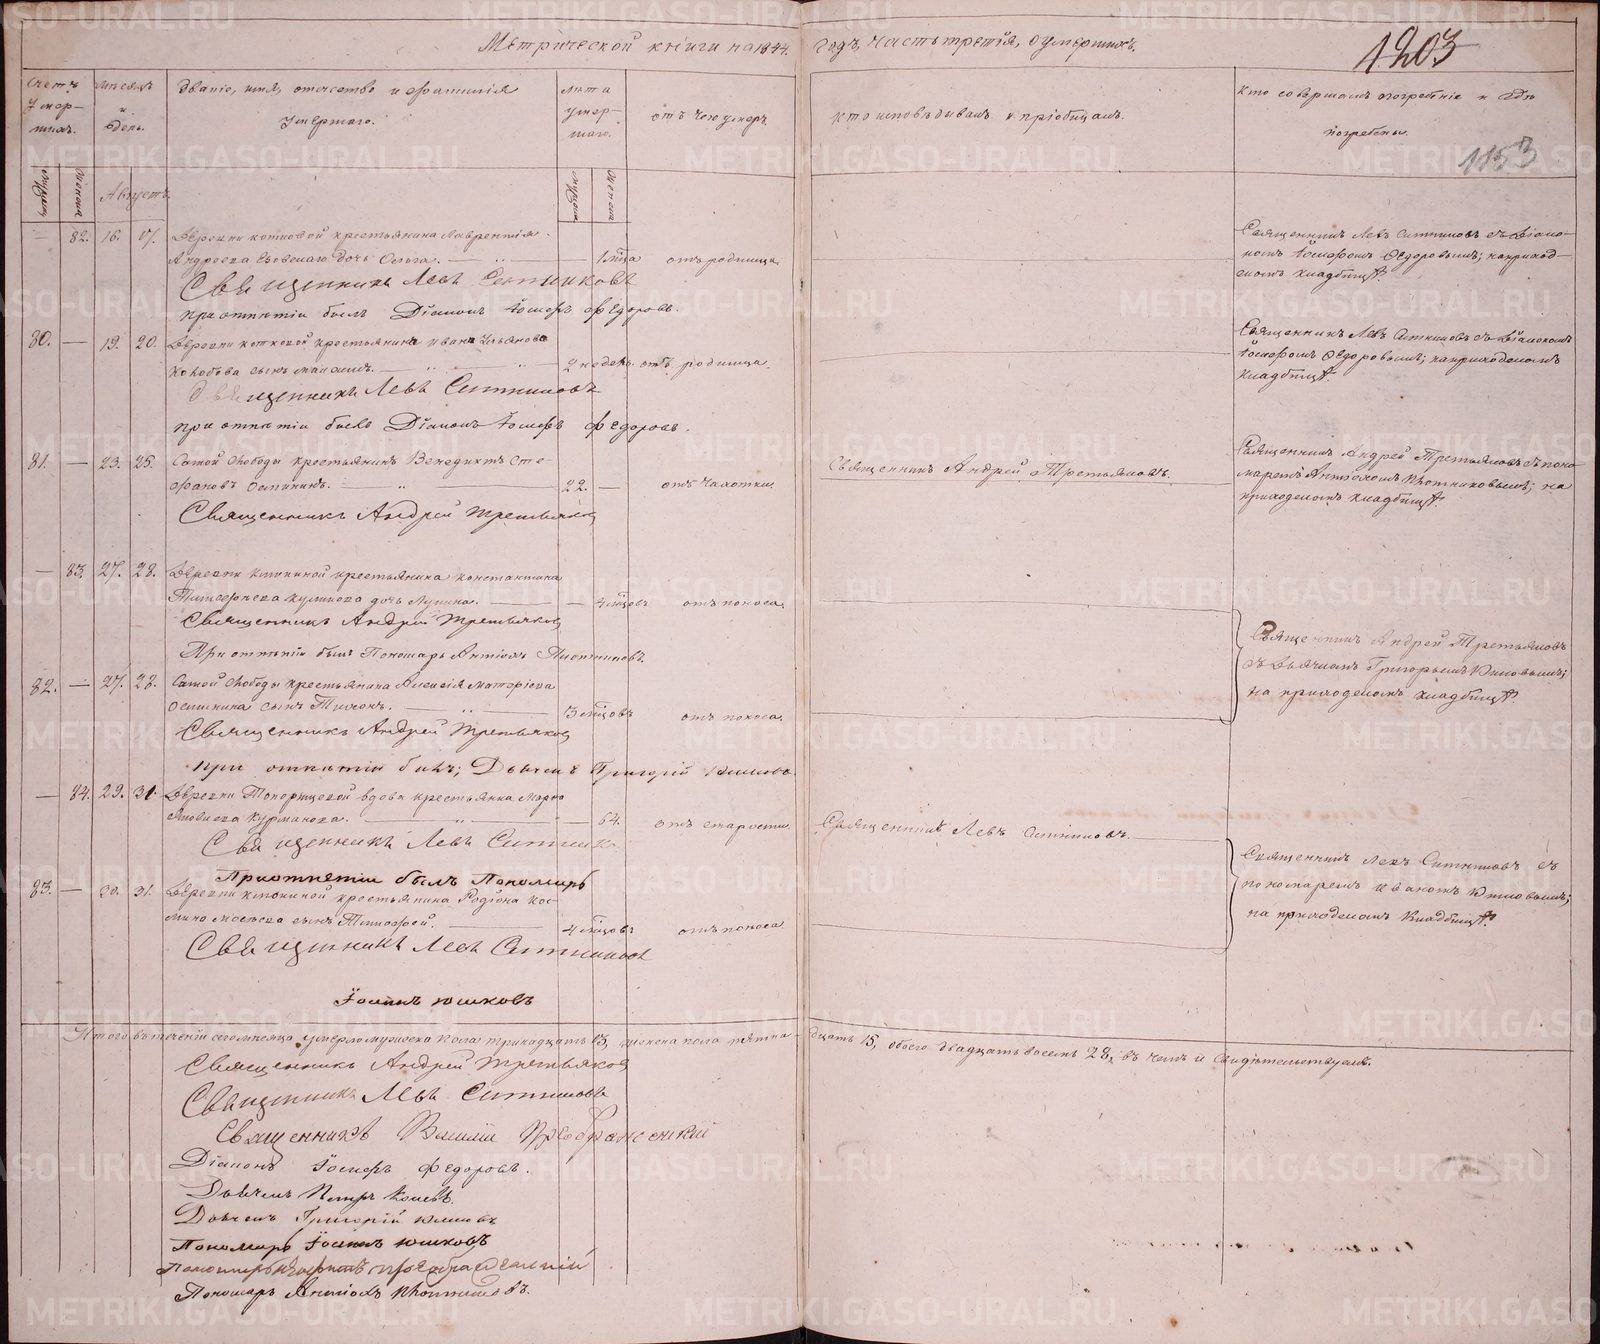 Метрической книги на 1844. годъ, часть третія, о умершихъ.
1203
1153
Счетъ умер-
шихъ.
Мѣсяцъ
и
день.
Званіе, имя, отечество и фамилія
умершаго.
Лѣта
умер-
шаго.
отъ чего умеръ.
кто исповѣдывалъ и пріобщалъ.
Кто совершалъ погребеніе и гдѣ
погребены.
Мужеска
Женска
Августъ.
Мужеска
Женска
— 82. 16. 17. Деревни котковой крестьянина Лаврентія
Андреева дочь Ольга. — 1 мѣсца отъ родимца.
Священникъ Левъ Ситниковъ съ діако-
номъ Іосифомъ Ѳедоровымъ; на приход-
скомъ кладбищѣ.
Священникъ Левъ Ситниковъ
при отпѣтіи былъ Діаконъ Іосифъ Федоровъ.
80. — 19. 20. Деревни котковой крестьянина Ивана
сынъ — 2 недѣль отъ родимца.
Священникъ Левъ Ситниковъ съ Діакономъ
Іосифомъ Ѳедоровымъ; на приходскомъ
кладбищѣ.
Священникъ Левъ Ситниковъ
при отпѣтіи былъ Діаконъ Іосифъ Федоровъ.
81. — 23. 25. Самой слободы крестьянинъ Венедиктъ Сте-
фановъ — 22. — отъ чахотки.
Священникъ Андрей Третьяковъ.
Священникъ Андрей Третьяковъ съ поно-
маремъ Антіохомъ Плотниковымъ; на
приходскомъ кладбищѣ.
Священникъ Андрей Третьяковъ
— 83. 27. 28. Деревни крестьянина Константина
Тимофеева Куликова дочь — 4 мѣсцовъ отъ поноса.
Священникъ Андрей Третьяковъ
При отпѣтіи былъ Пономарь Антіохъ Плотниковъ.
Священникъ Андрей Третьяковъ
съ Дьячкомъ Григорьемъ
на приходскомъ кладбищѣ.
82. — 27. 28. Самой слободы крестьянина Алексія
сынъ Тихонъ. — 3 мѣсцовъ отъ поноса.
Священникъ Андрей Третьяковъ
при отпѣтіи былъ; Дьячекъ Григорій
— 84. 29. 31. Деревни Топорищевой вдова крестьянка Марѳа
Яковлева Курманова. — 64. отъ старости.
Священникъ Левъ Ситниковъ.
Священникъ Левъ Ситниковъ
При отпѣтіи былъ Пономарь
Священникъ Левъ Ситниковъ съ
пономаремъ Іоаномъ Юшковымъ;
на приходскомъ кладбищѣ.
83. — 30. 31. Деревни крестьянина Родіона Кос-
мина сынъ Тимофей. — 4 мѣсцовъ отъ поноса
Священникъ Левъ Ситниковъ
Іоаннъ Юшковъ
Итого въ теченіи сего мѣсяца умерло мужеска пола тринадцать 13, женска пола пятна- дцать 15, обоего двадцать восемь 28, въ чемъ и свидѣтельствуемъ.
Священникъ Андрей Третьяковъ
Священникъ Левъ Ситниковъ
Священникъ Василій Преображенскій
Діаконъ Іосифъ Федоровъ.
Дьячекъ Петръ
Дьячекъ Григорій
Пономарь Іоаннъ Юшковъ
Пономарь Преображенскій
Пономарь Антіохъ Плотниковъ.
METRIKI.GASO-URAL.RU